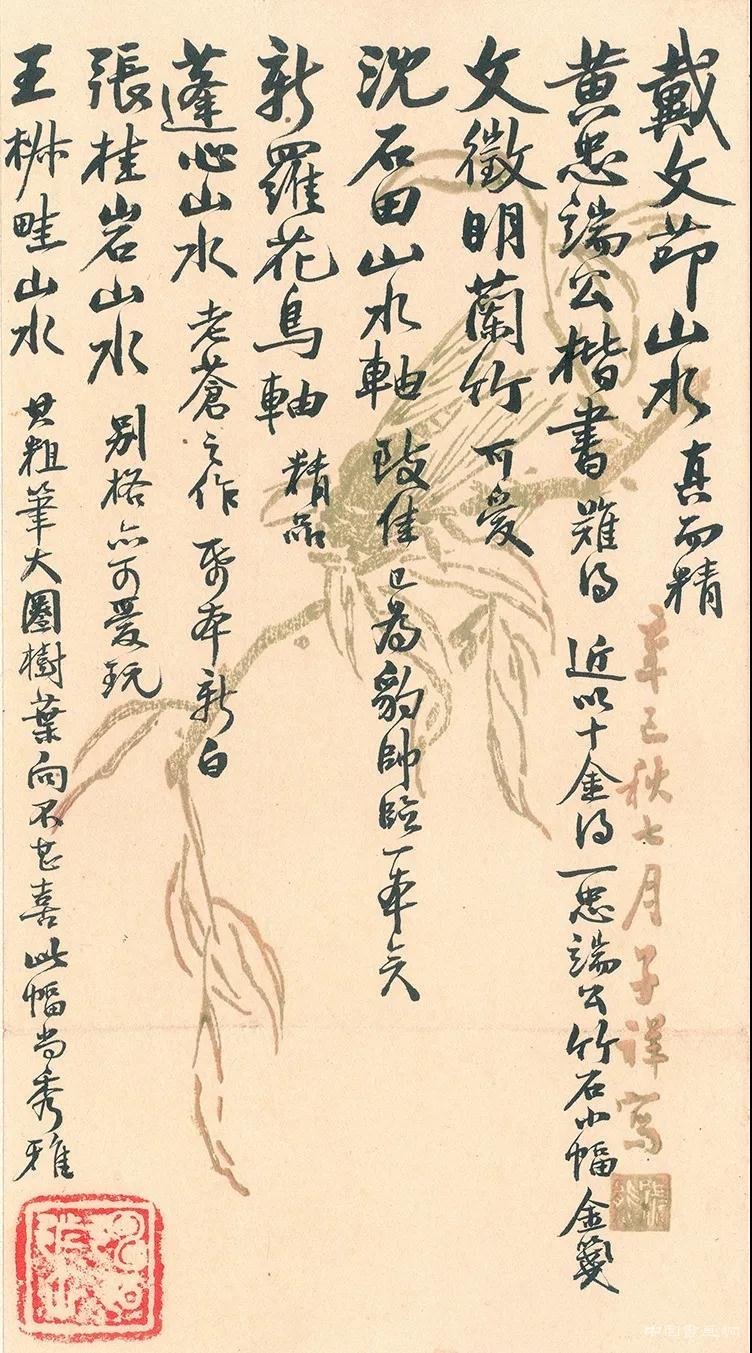 戴文莭山水 真而精
黃忠端公楷書 難得 近以十金得一忠端公竹石小幅 金箋
文徵明蘭竹 可愛
沈石田山水軸 致佳 已為豹帥臨一本矣
新羅花鳥軸 精品
蓬心山水 老蒼之作 帋本新白
張桂岩山水 別格亦可愛玩
王椒畦山水 其粗筆大圈樹葉向不甚喜此幅尚秀雅
辛巳秋七月子祥寫